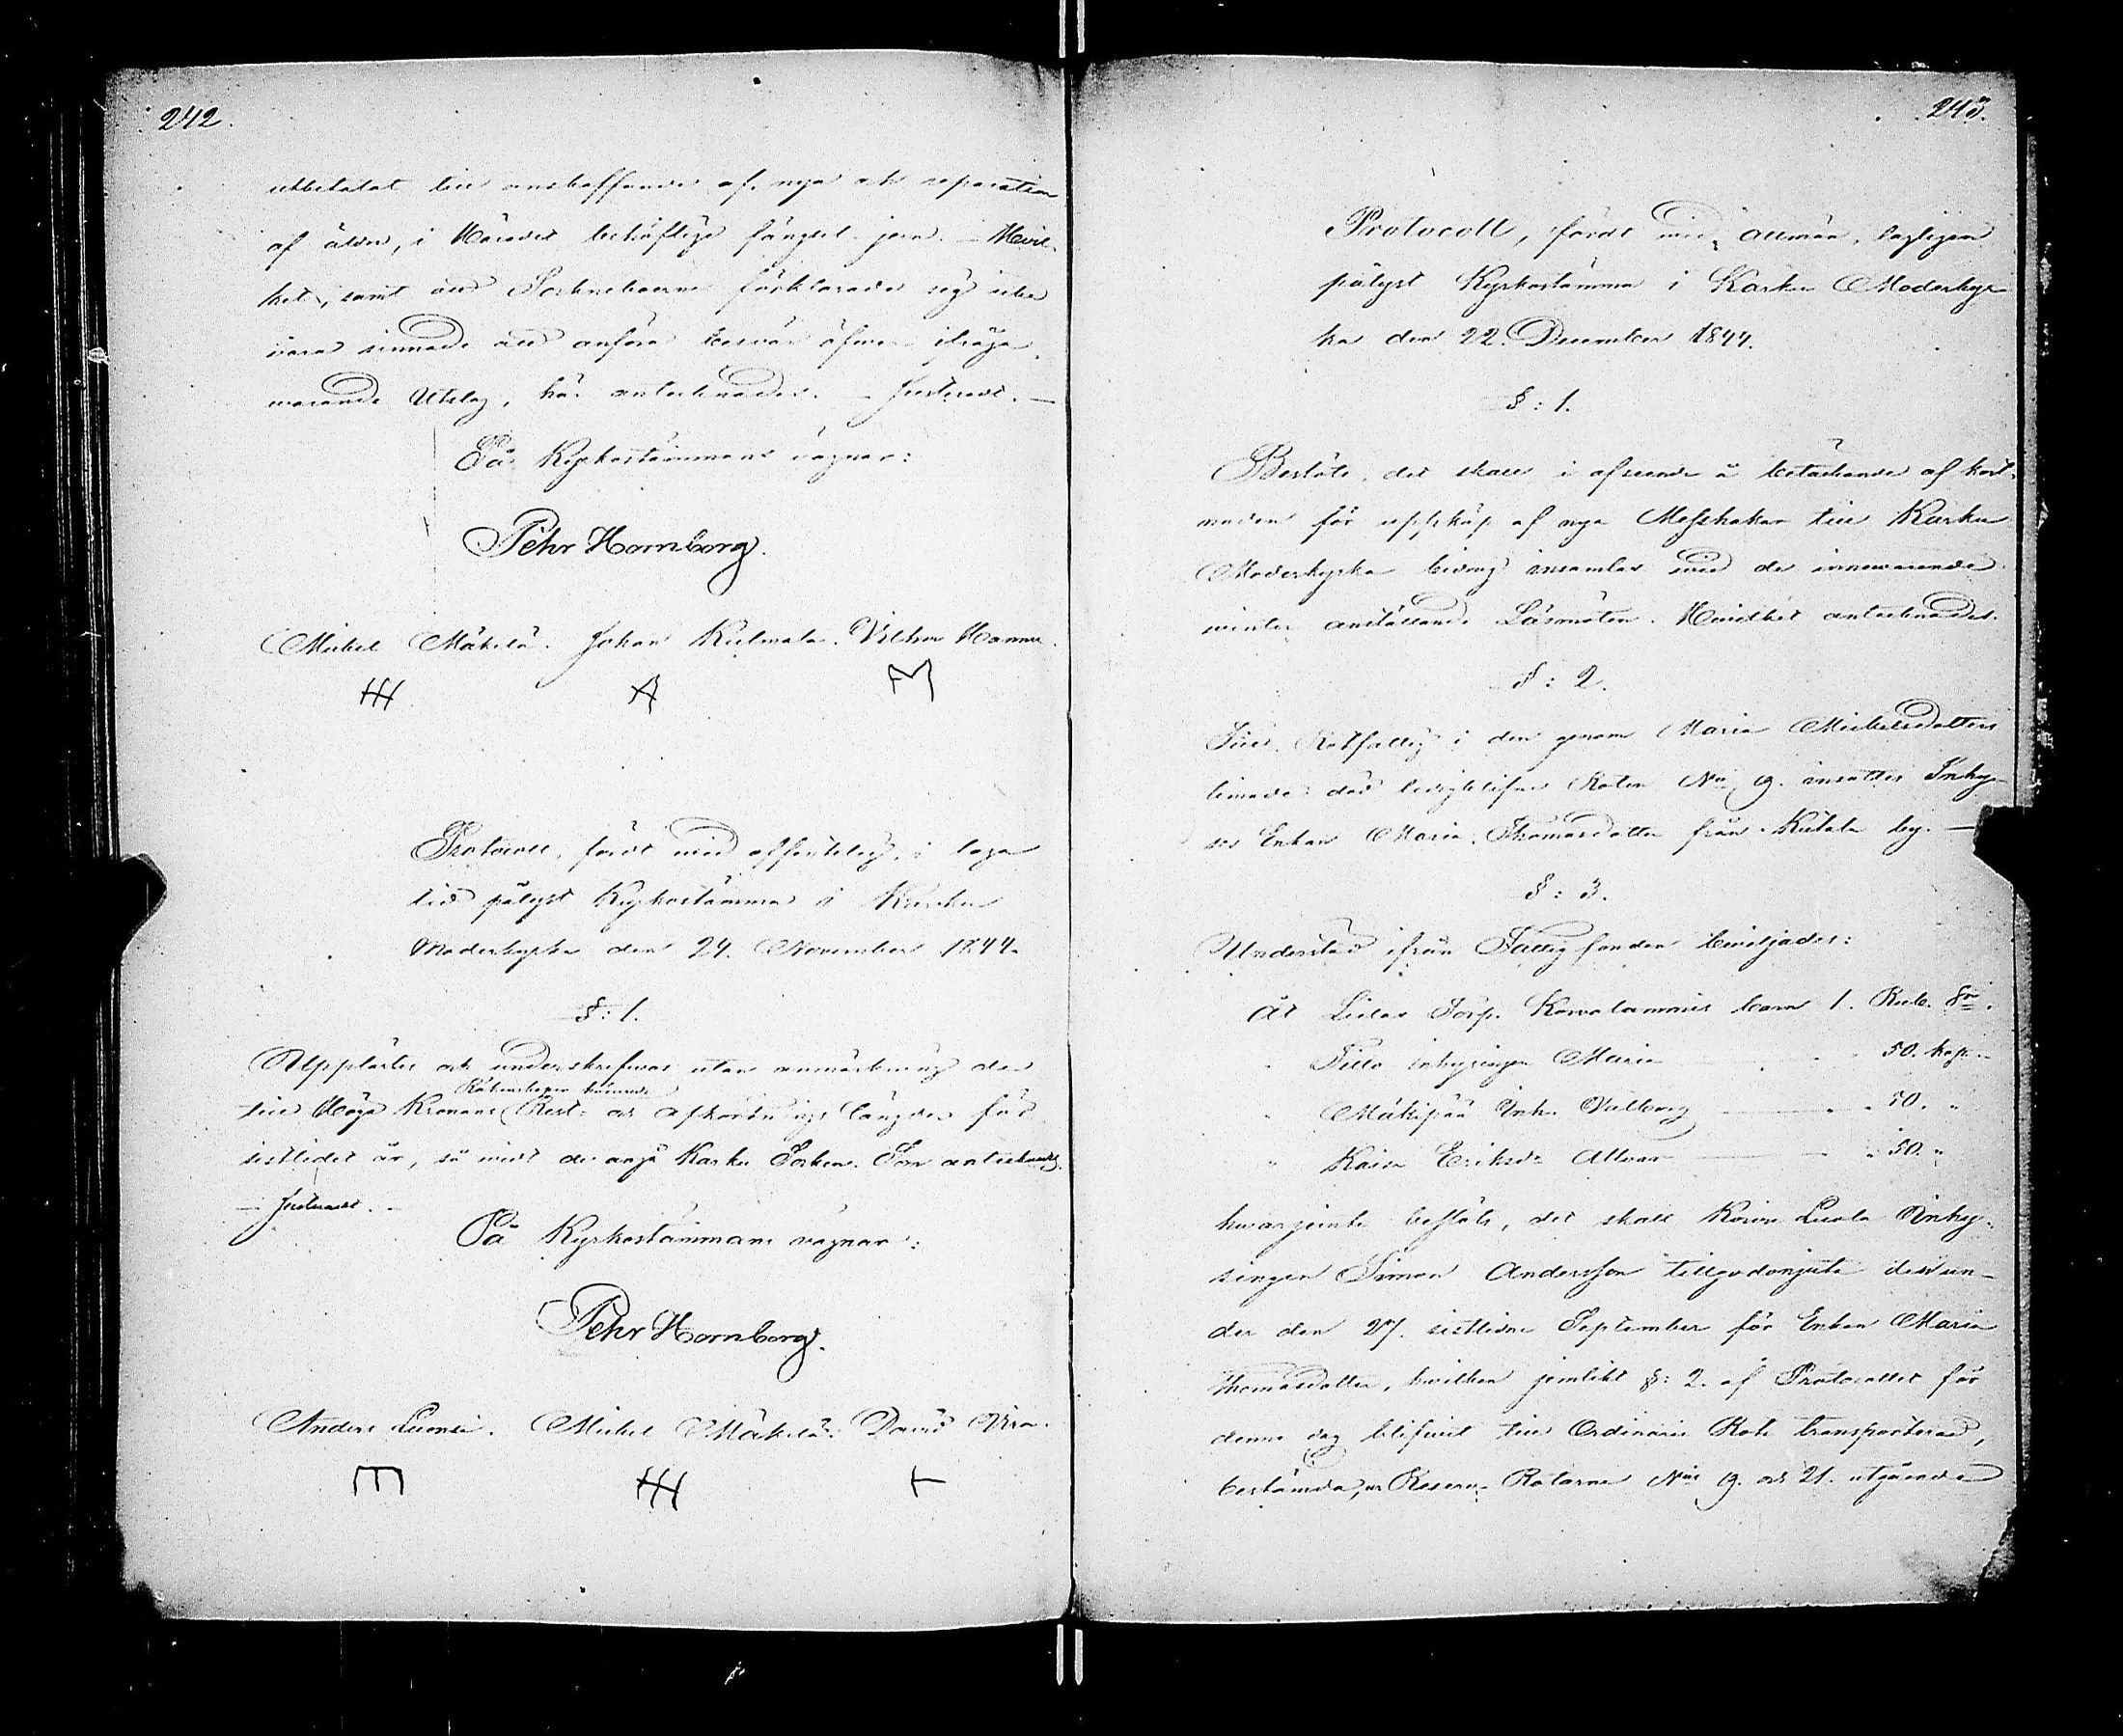 242.
utbetalat till anskaffande af nya och reparation
af äldre, i Häradet behöflige fängsel-jern. - Hvil-
ket, samt att Sockneboerne förklarade sig icke
vara sinnade att anföra besvär öfver ifråga-
warande Utslag, här antecknades. - Justeradt. -
På Kyrkostämmans vägnar:
Pehr Hornborg.
Michel Mäkelä. Johan Kulmala. Vilhm Hannu.
Protocoll, fördt vid offentelig, i laga
tid pålyst Kyrkostämma i Karku
Moderkyrka den 24. November 1844.
§: 1.
Upplästes och underskrefwos utan anmärkning de
Räkenskaper hörande
till Höga Kronans Rest- och Afkortnings längder för
sistledet år, så vidt de angå Karku Socken. Som antecknades.
- Justeradt. -
På Kyrkostämmans vägnar:
Pehr Hornborg.
Anders Luonsi. Michel Mäkelä. David
243.
Protocoll, fördt vid allmän, lagligen
pålyst Kyrkostämma i Karku Moderkyr-
ka den 22. December 1844.
§: 1.
Beslöts, det skall i afseende å betäckande af kost-
naden för uppköp af nya Messhakar till Karku
Moderkyrka bidrag insamlas vid de innewarande
winter anställande Läsmöten. Hvilket antecknades.
§: 2.
Till Rotfattig i den genom Maria Michelsdotters
timade död ledigblifne Roten No 19. insattes Inhy-
ses Enkan Maria Thomasdotter från Kutala by. -
§: 3.
Understöd ifrån Fattigfonden beviljades:
åt Torp. barn 1. Rub. Sr.
" inhysingen Maria " 50. kop.
" Mäkipää Inh. Valborg " 50. "
" Kaisa Eriksdr " 50. "
hvarjemte beslöts, det skall Inhy-
singen Simon Andersson tillgodonjuta det un-
der den 27. sistledne September för Enkan Maria
Thomasdotter, hvilken jemlikt §: 2. af Protocollet för
denne dag blifwit till Ordinarie Rote transporterad,
bestämda, ur Reserv-Rotarne No 19. och 21. utgående